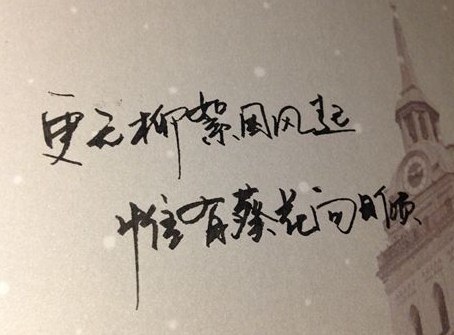 更无柳絮因风起
惟有蔡花向日倾